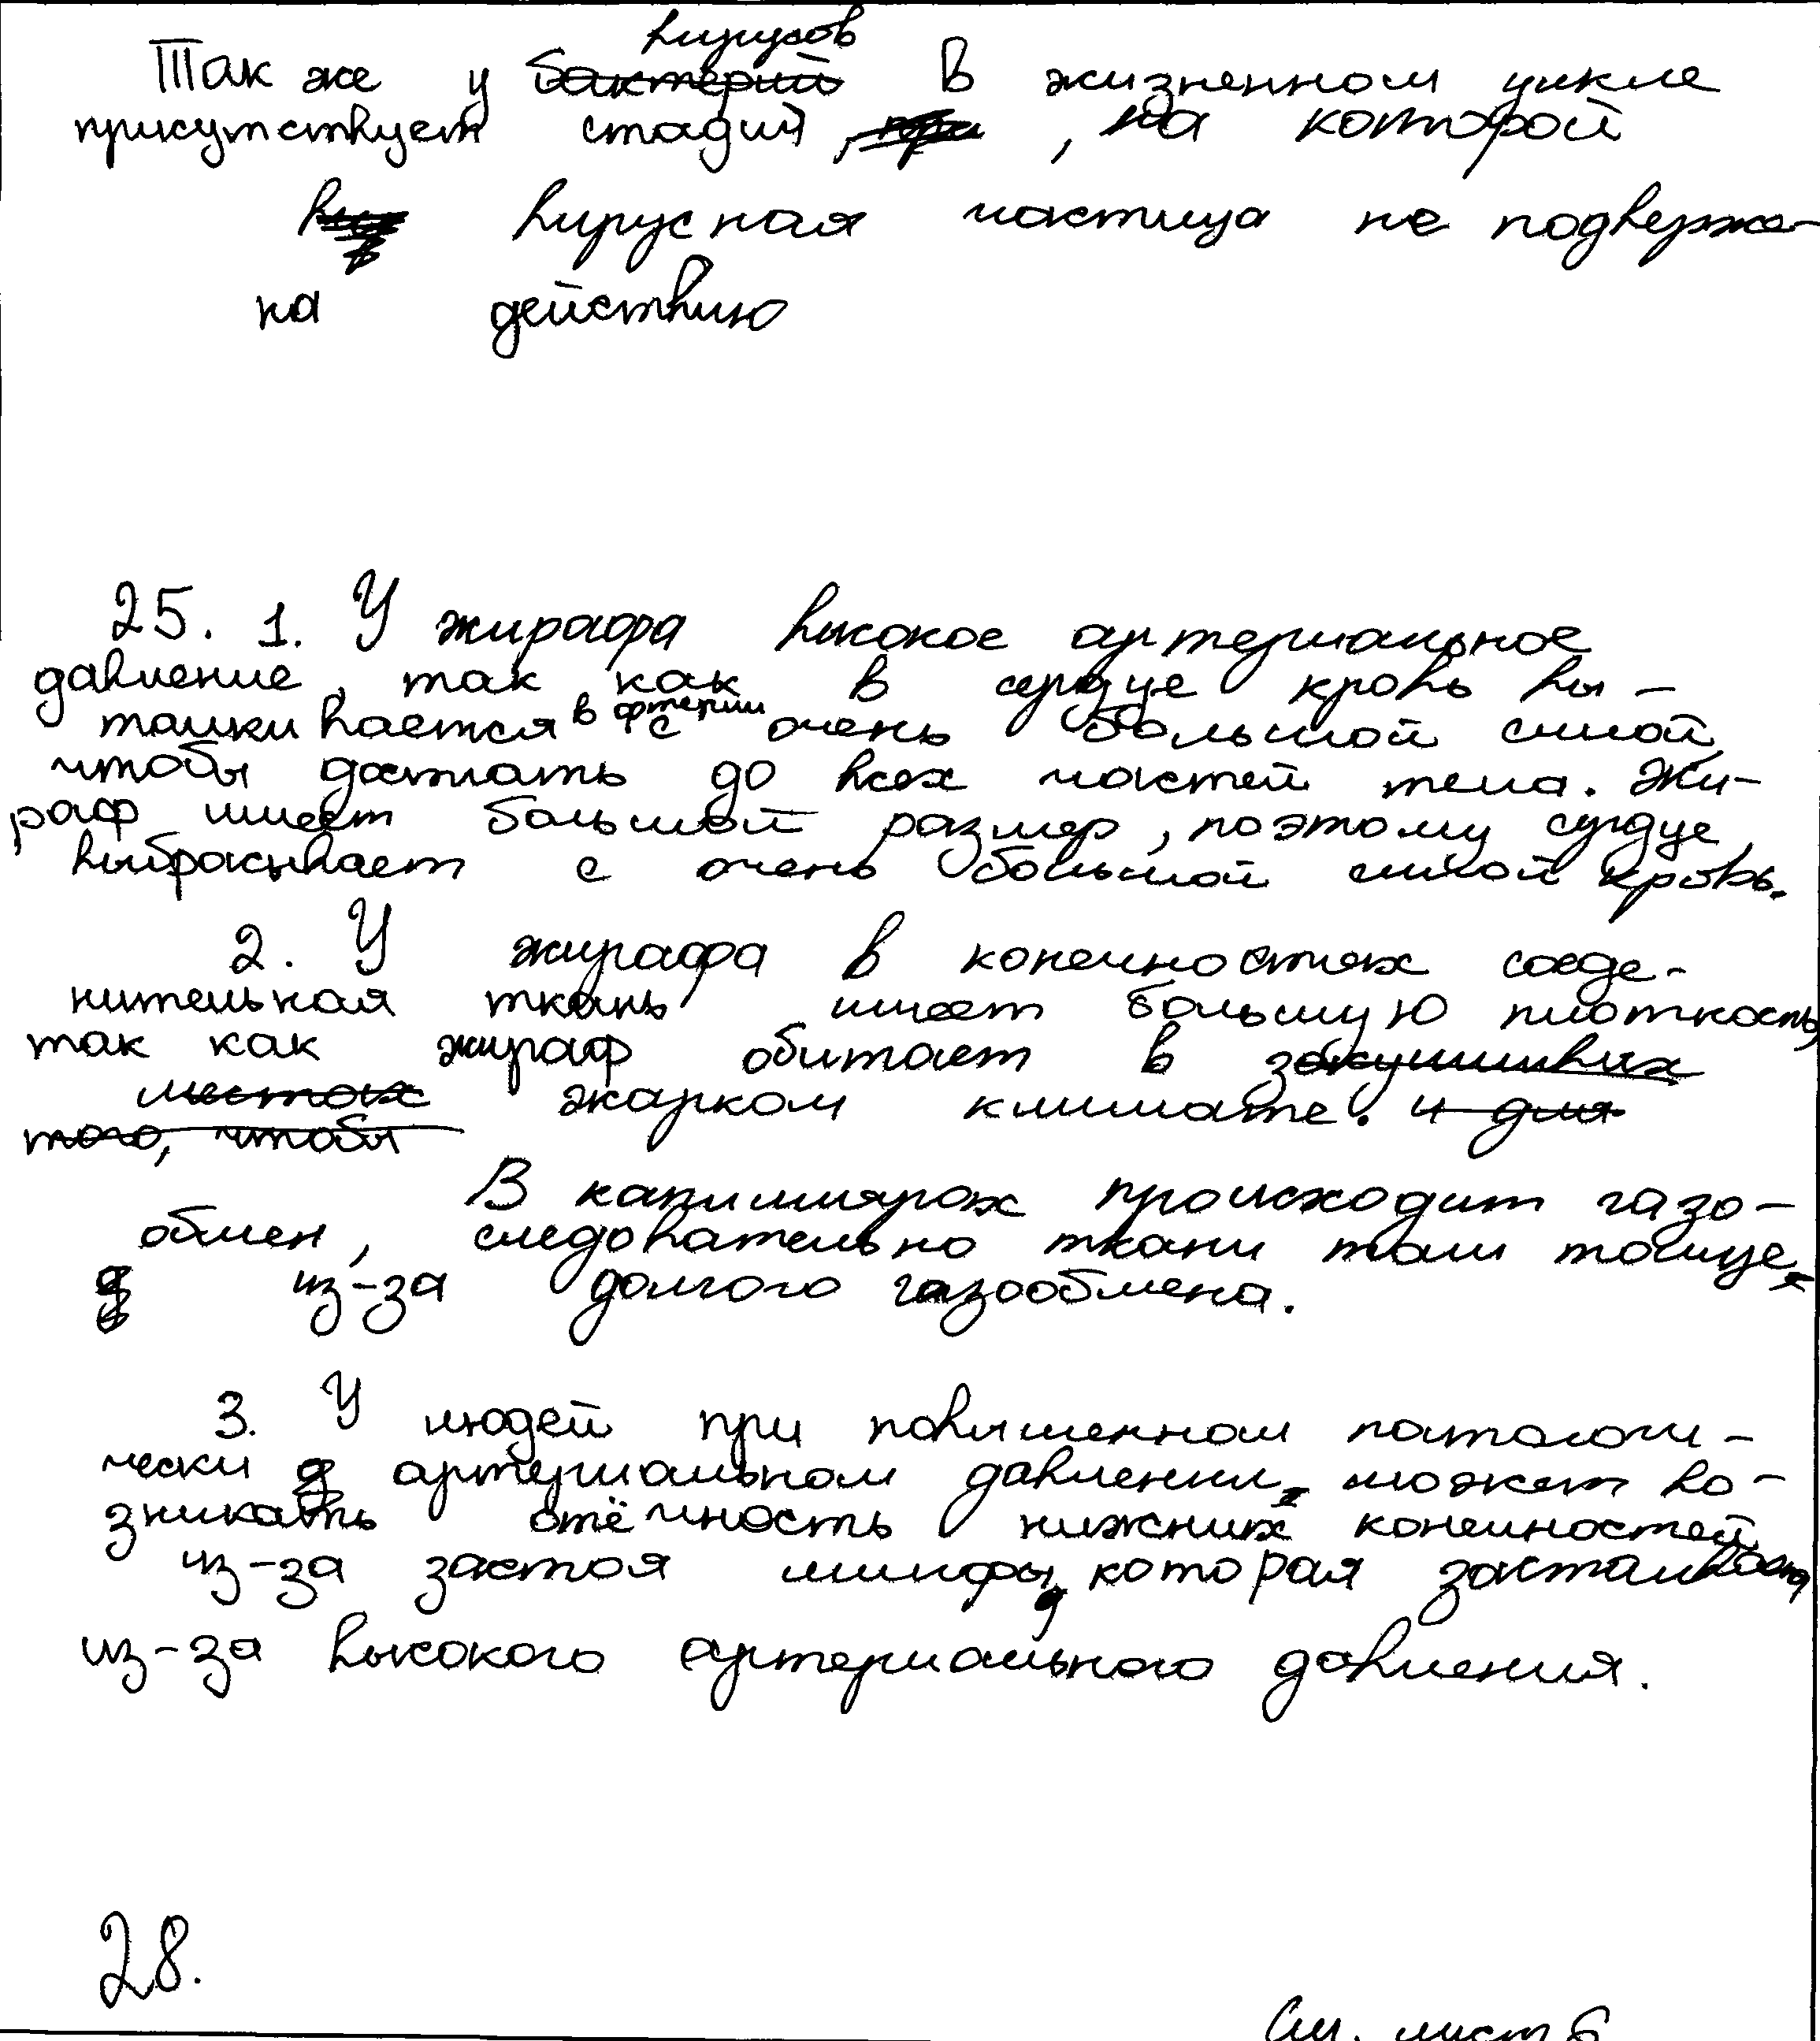 вирусов
Так же у бактерий в жизненном цикле
присутствует стадий, при , на которой
вирусная частица не подверже-
на действию
25. 1. У жирафа высокое артериальное
давление, так как в сердце кровь вы-
талкивается в артерии с очень большой силой,
чтобы достать до всех частей тела. Жи-
раф имеет большой размер, поэтому сердце
выбрасывает с очень большой силой кровь.
2. У жирафа в конечностях соеде-
нительная ткань имеет большую плоткость,
так как жираф обитает в засушливых
местах жарком климате. и для
того, чтобы
В капиллярах происходит газо-
обмен, следовательно ткани там толще,
из-за долгого газообмена.
3. У людей при повышенном патологи-
чески артериальном давлении может во-
зникать отёчность нижних конечностей
из-за застоя лимфы, которая застаивается
из-за высокого артериального давления.
28.
См. лист 6